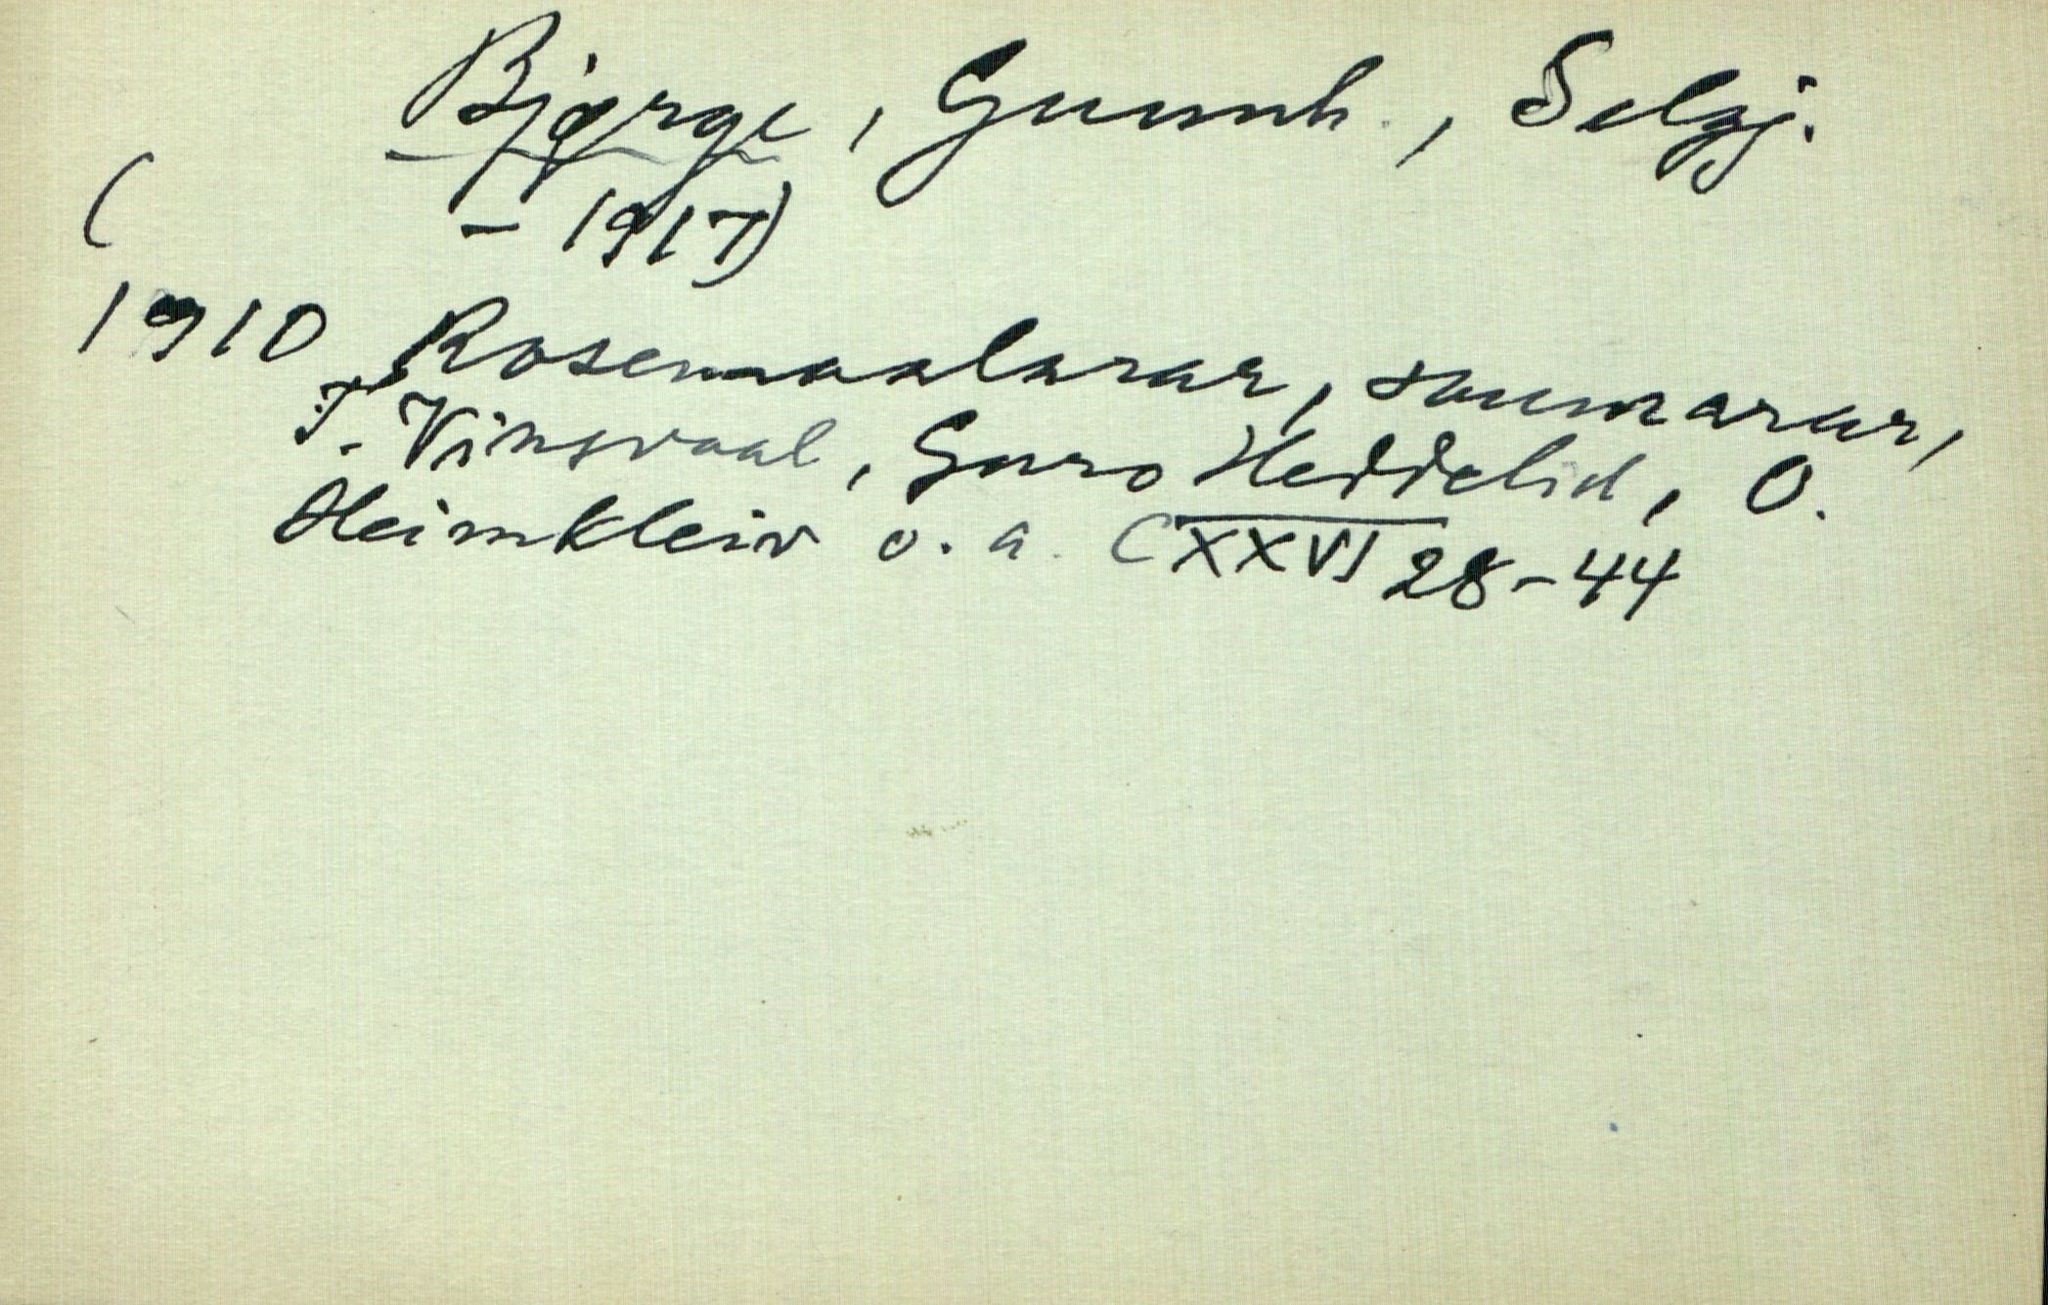 Bjørge, Gunnh., Selgj.
( - 1917)
1910 Rosemaalarar, saumarar,
T. Vinsvaal, Guro Heddelid, O.
Heimkleiv o. a. CXXVI 28-44